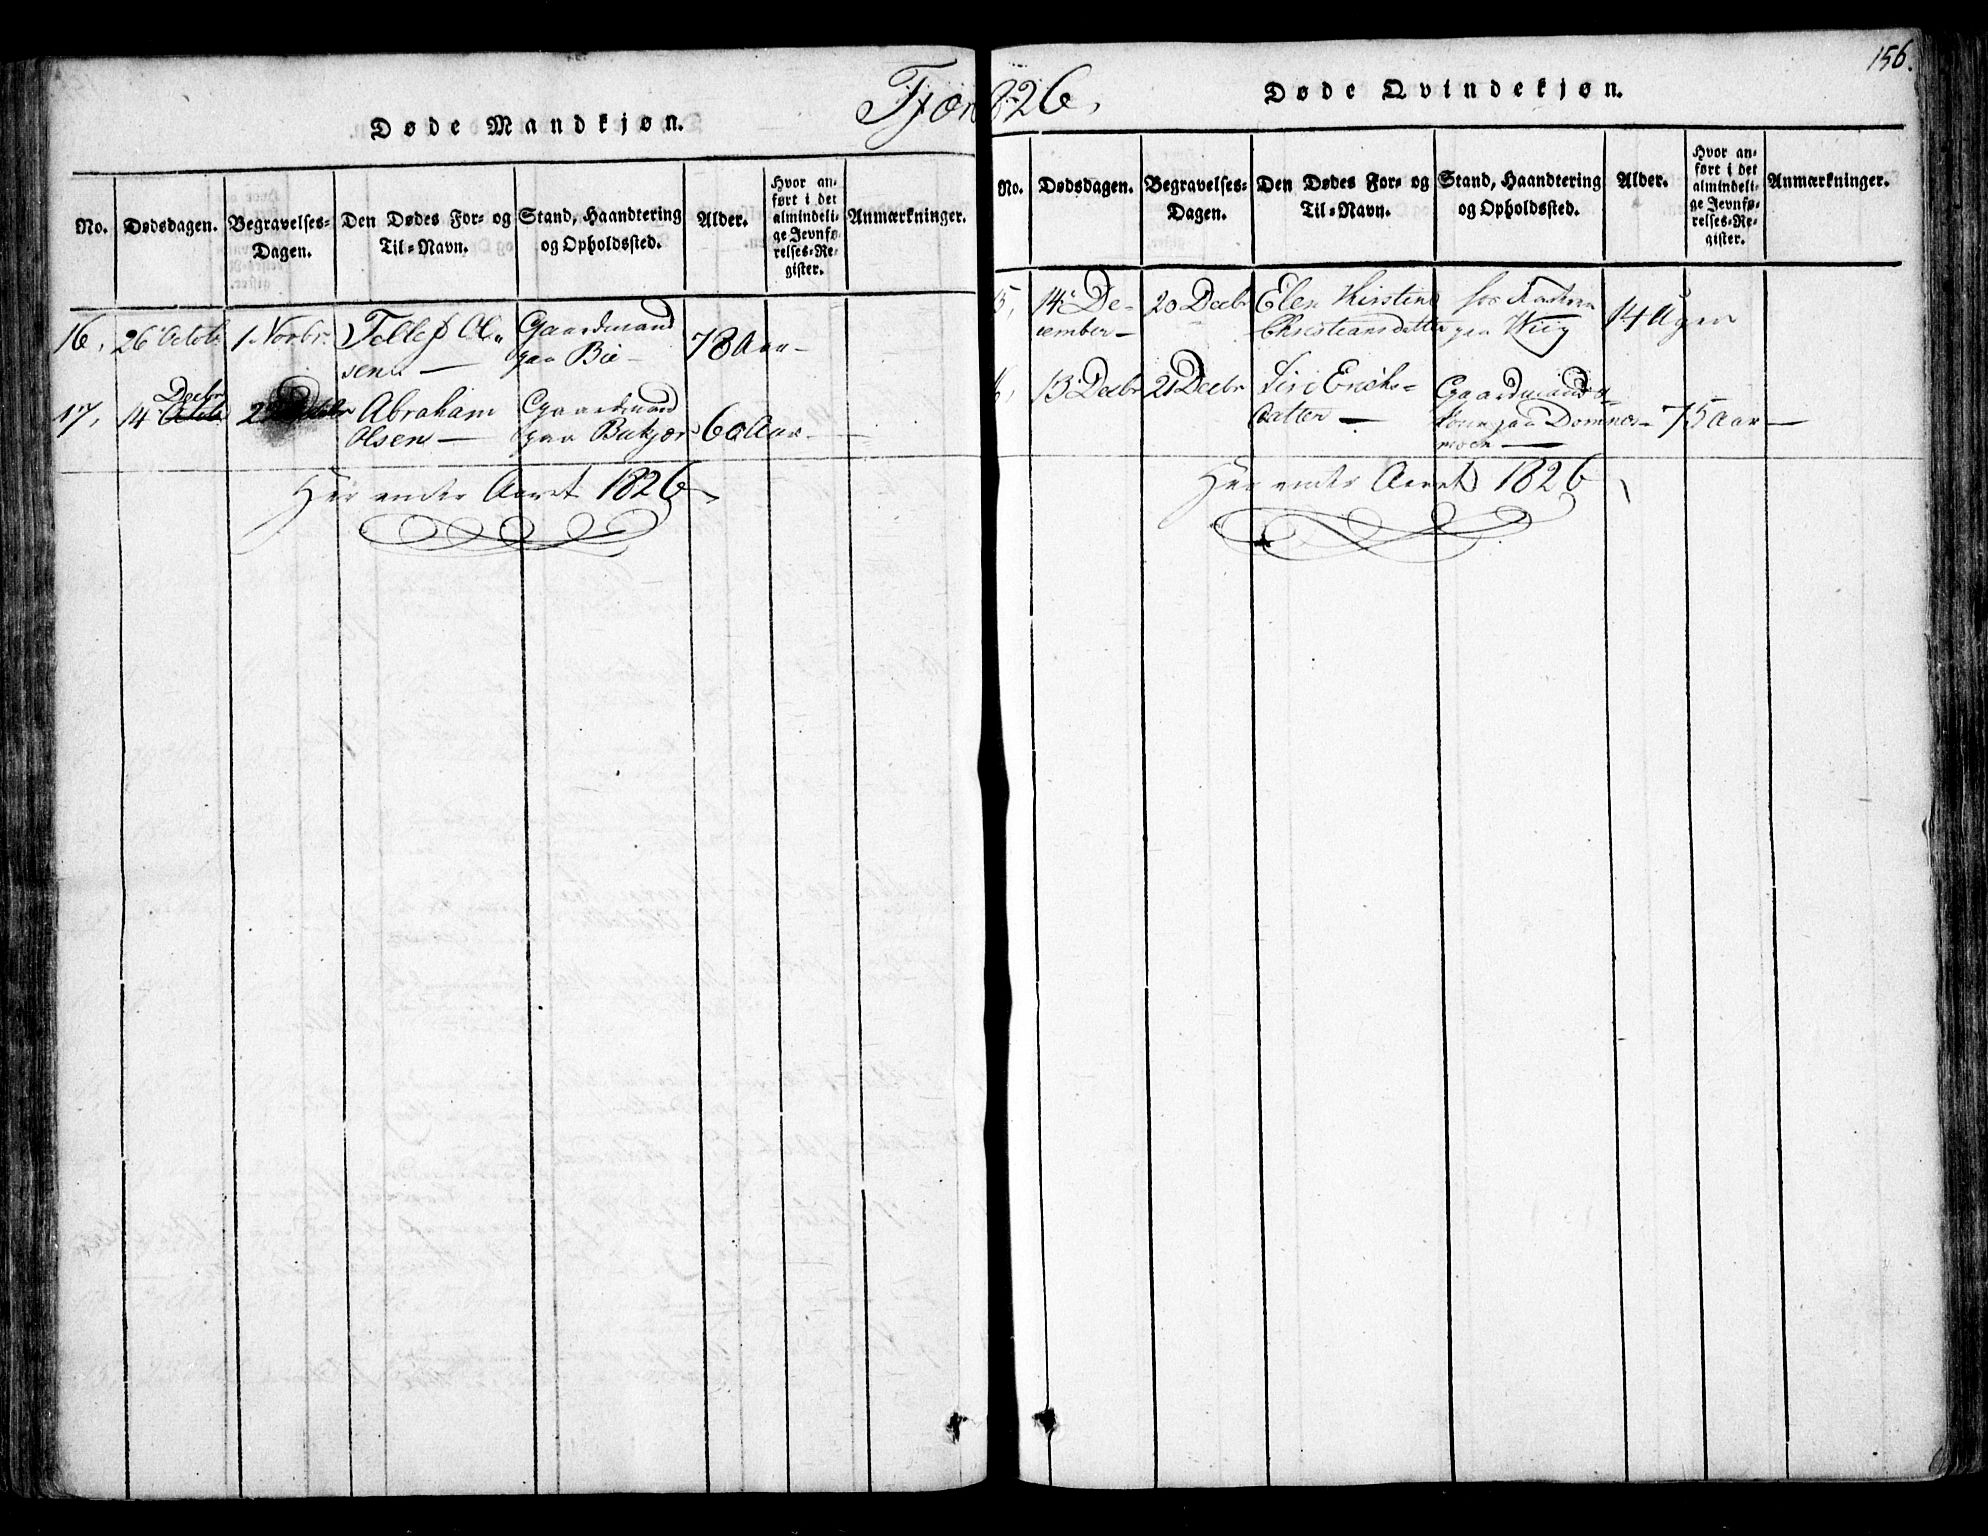 156.
Fjær 826.
Døde Mandkjøn.
No. Dødsdagen. Begravelses-Dagen. Den Dødes For- og Til-Navn. Stand, Haandtering og Opholdssted. Alder. Hvor anført i det almindelige Jevnførelses-Register. Anmærkninger.
16, 26 Octob 1 Novbr. Tellef Ol„ Gaardmand 78 Aar
sen. — paa Bie —
Decbr
17, 14 Octob Abraham Gaardmand 60 Aar
Olsen — paa
Her ender Aaret 1826
Døde Qvindekjøn.
No. Dødsdagen. Begravelses-Dagen. Den Dødes For- og Til-Navn. Stand, Haandtering og Opholdssted. Alder. Hvor anført i det almindelige Jevnførelses-Register. Anmærkninger.
5, 14 De- 20 Decbr Elen Kirstine 14 Uger
cember — Christiansdatter paa Wiig
6, 13 Decbr 21 Decbr Siri Erichs- Gaardmands-
datter — paa 75 Aar —
moen —
Her ender Aaret 1826